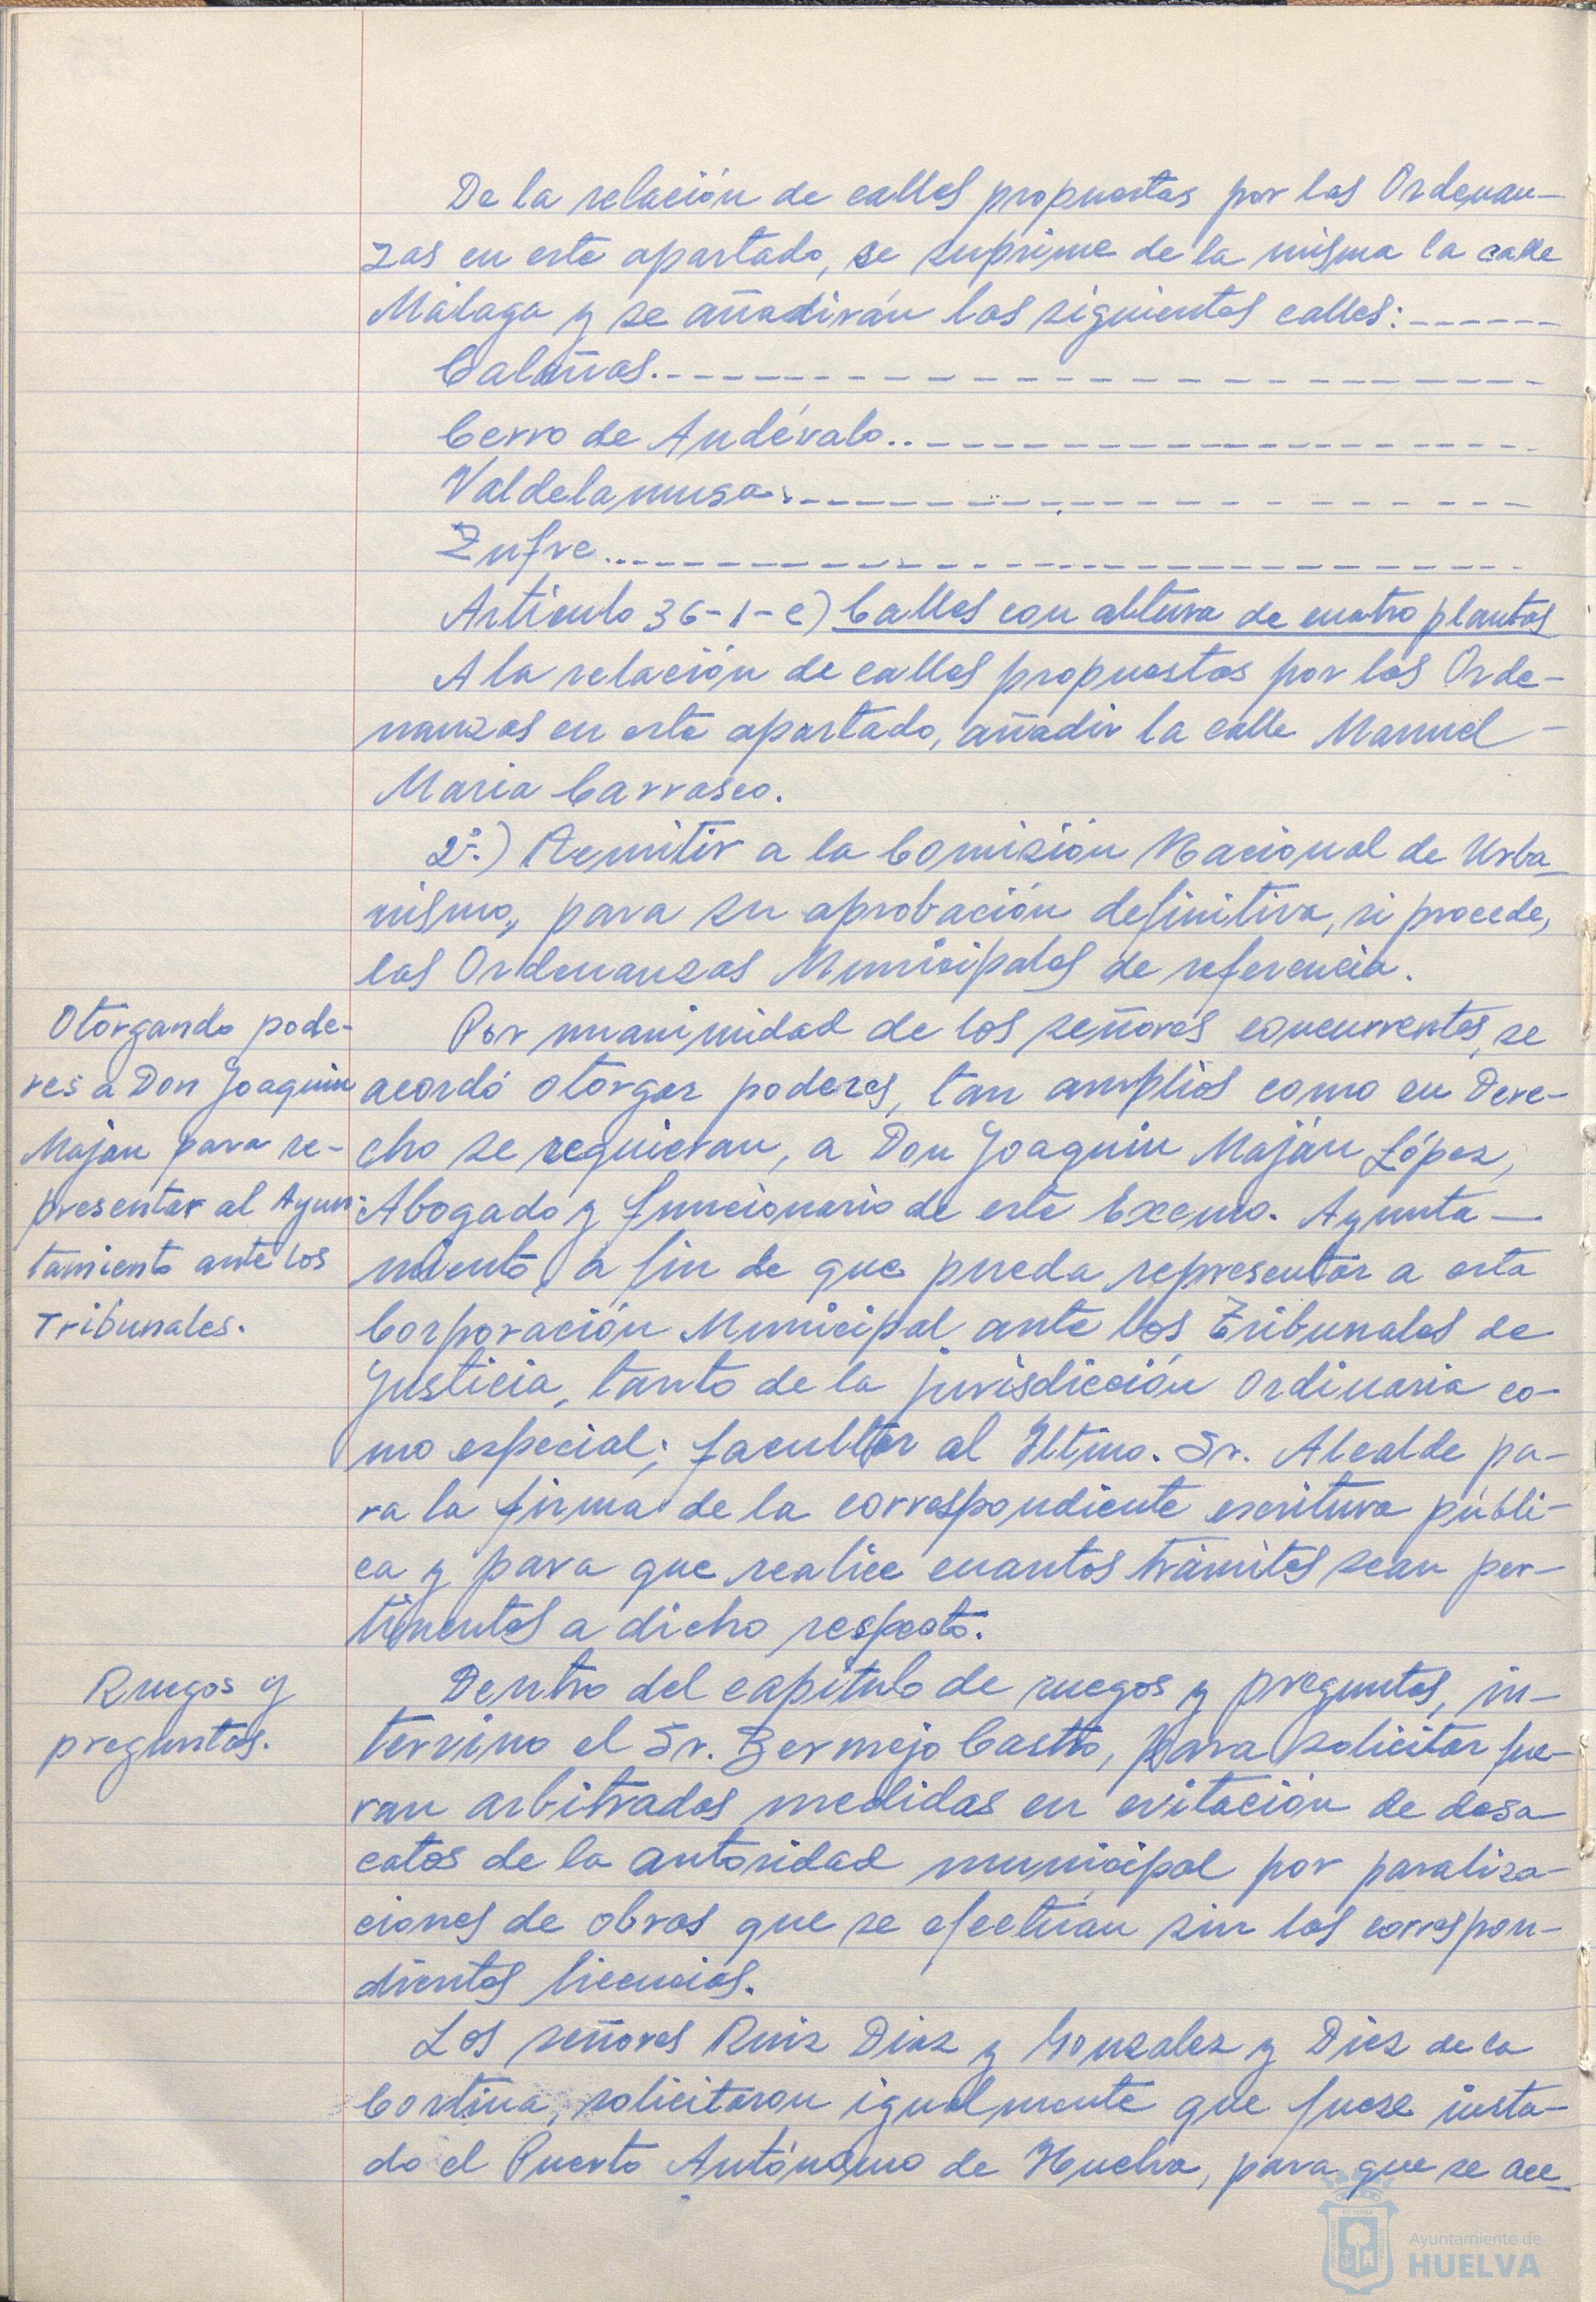 De la relación de calles propuestas por las Ordenan-
zas en este apartado, se suprime de la misma la calle
Málaga y se añadirán las siguientes calles:
Calañas.
Cerro de Andévalo.
Valdelamusa.
Zufre.
Artículo 36-1-e) Calles con altura de cuatro plantas
A la relación de calles propuestas por las Orde-
nanzas en este apartado, añadir la calle Manuel
Maria Carrasco.
2º.) Remitir a la Comisión Nacional de Urba-
nismo, para su aprobación definitiva, si procede,
las Ordenanzas Municipales de referencia.
Otorgando pode-
res a Don Joaquin
Maján para re-
presentar al Ayun-
tamiento ante los
Tribunales.
Por unanimidad de los señores concurrentes, se
acordó otorgar poderes, tan amplios como en Dere-
cho se requieran, a Don Joaquin Maján López,
Abogado y funcionario de este Excmo. Ayunta-
miento, a fin de que pueda representar a esta
Corporación Municipal ante los Tribunales de
Justicia, tanto de la jurisdicción Ordinaria co-
mo especial; facultar al Iltmo. Sr. Alcalde pa-
ra la firma de la correspondiente escritura públi-
ca y para que realice cuantos trámites sean per-
tinentes a dicho respecto.
Ruegos y
preguntas.
Dentro del capítulo de ruegos y preguntas, in-
tervino el Sr. Bermejo Castro, para solicitar fue-
ran arbitradas medidas en evitación de desa-
catos de la autoridad municipal por paraliza-
ciones de obras que se efectúan sin las correspon-
dientes licencias.
Los señores Ruiz Diaz y Gonzalez y Diez de la
Cortina, solicitaron igualmente que fuese insta-
do el Puerto Autónomo de Huelva, para que se ace-
Ayuntamiento de
HUELVA